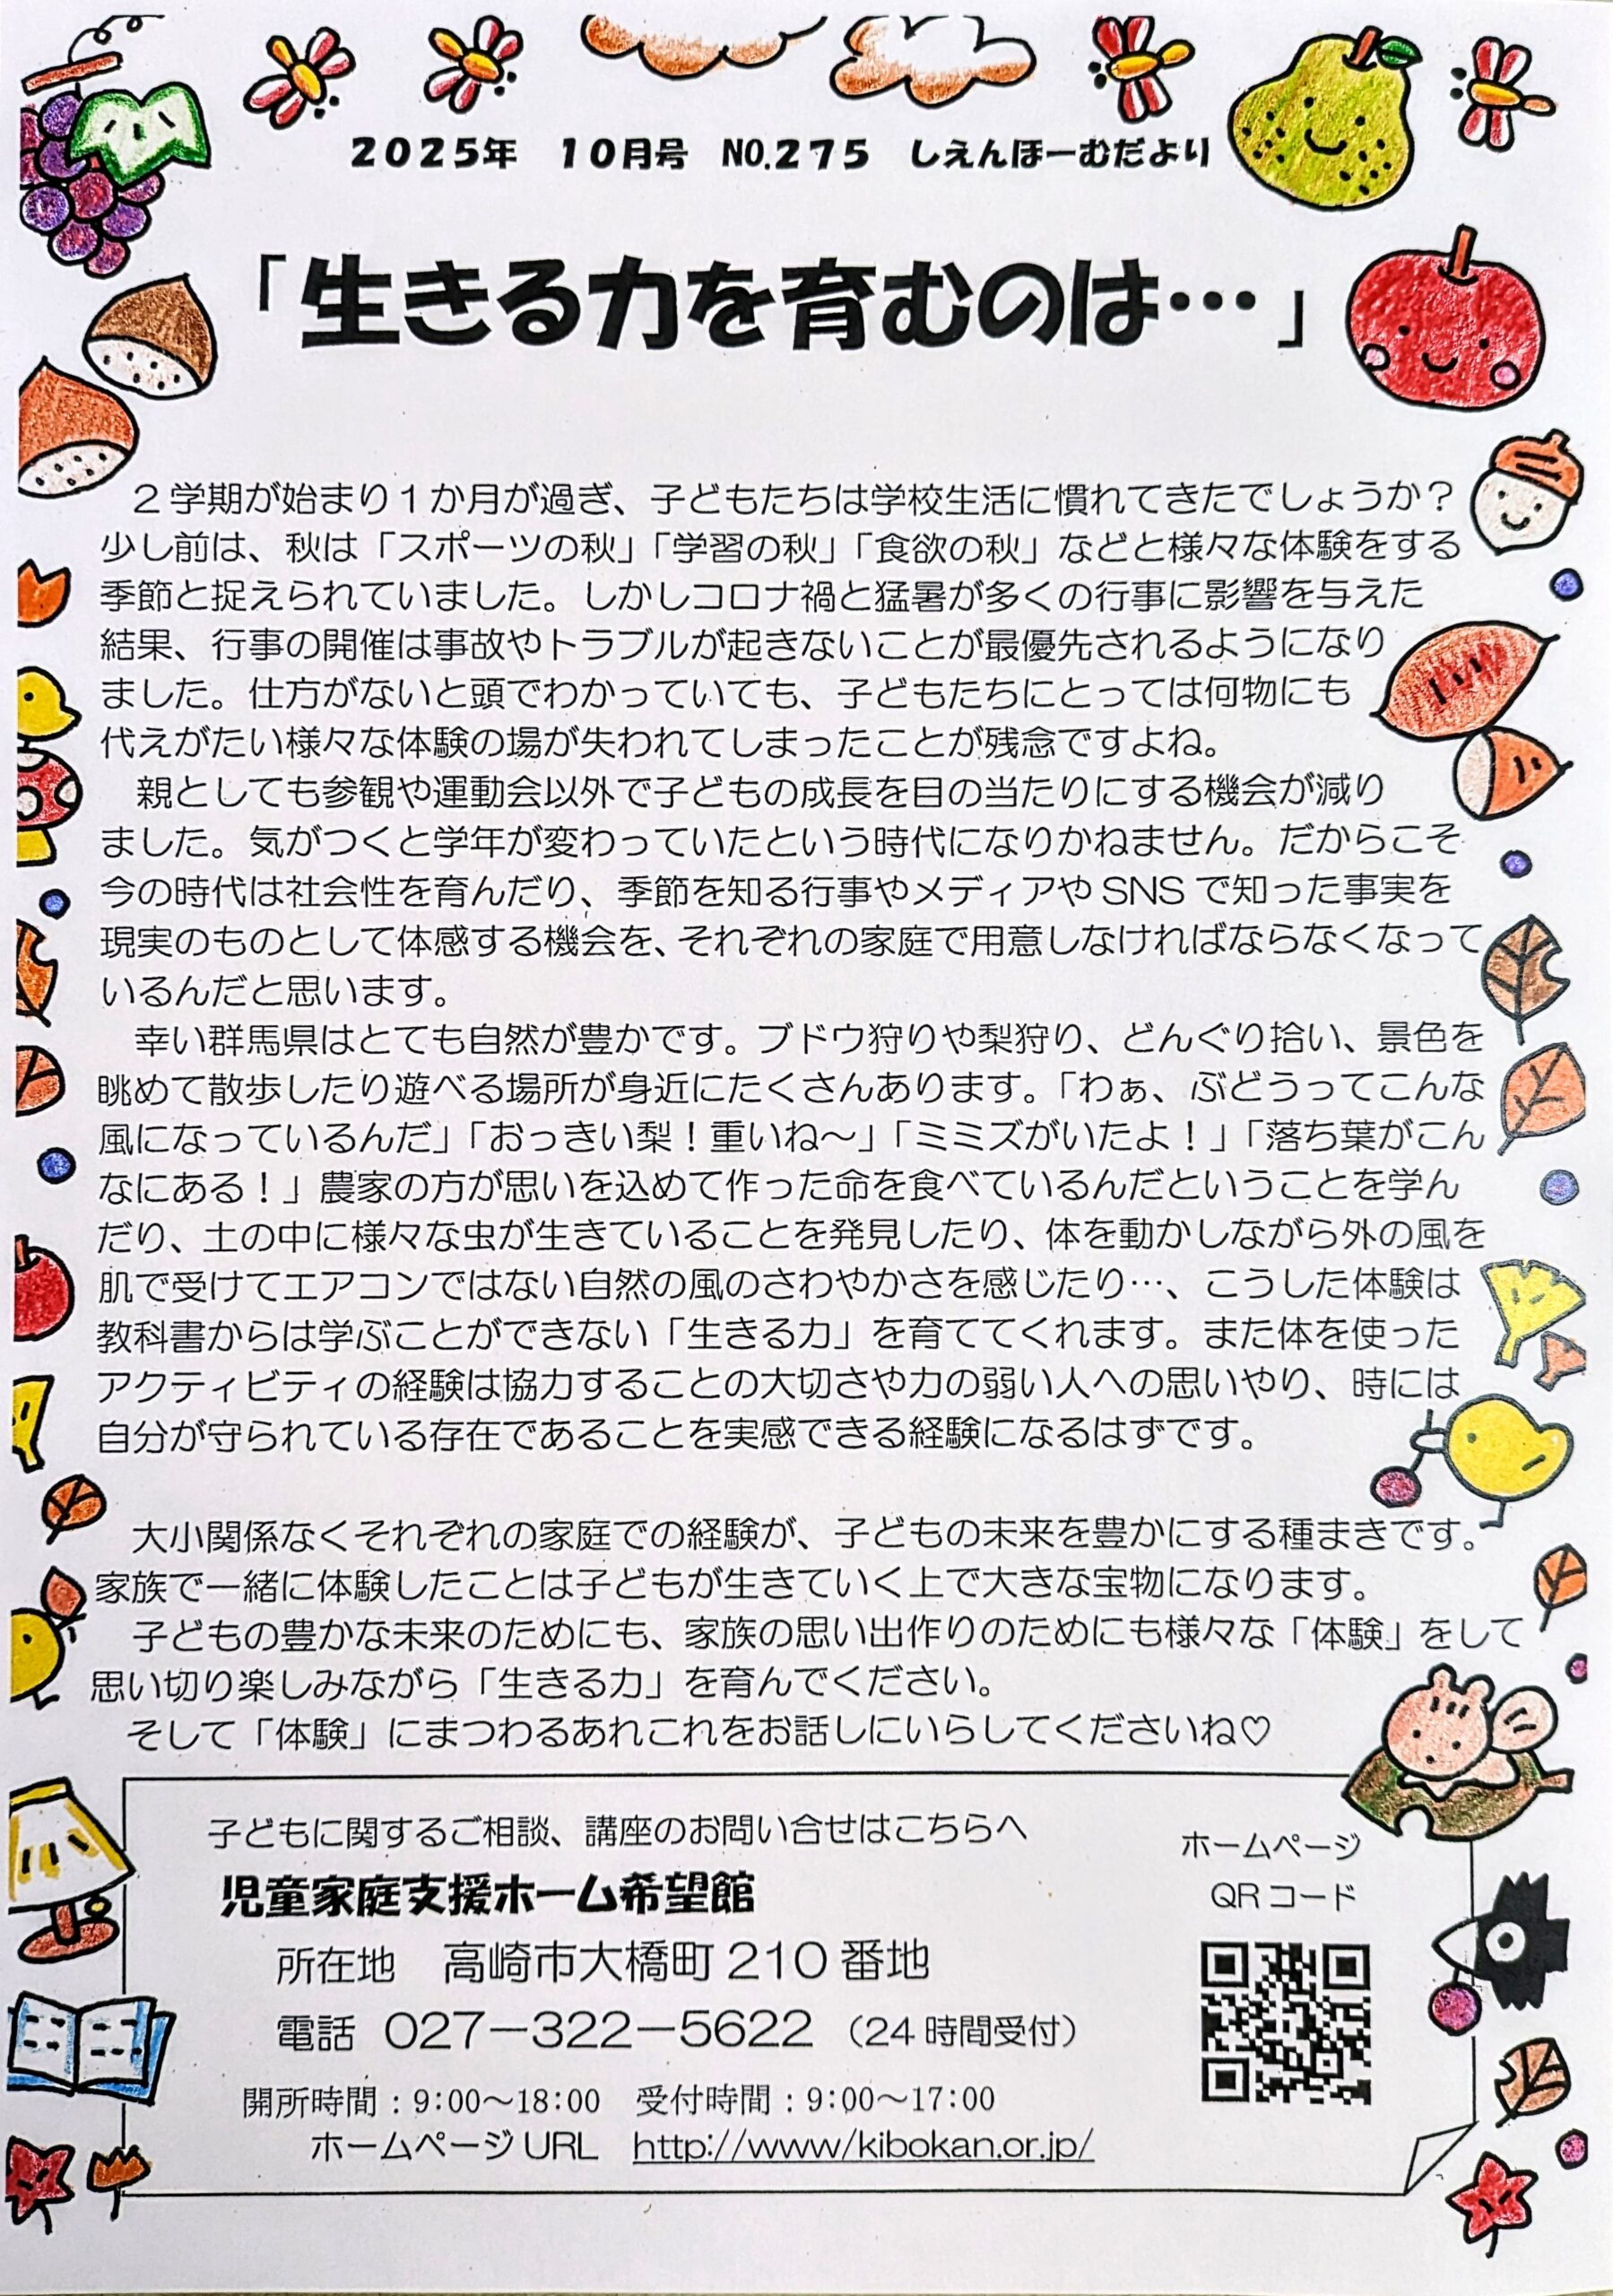 2025年　10月号　NO.275　しえんほーむだより
「生きる力を育むのは…」
2学期が始まり1か月が過ぎ、子どもたちは学校生活に慣れてきたでしょうか？
少し前は、秋は「スポーツの秋」「学習の秋」「食欲の秋」などと様々な体験をする
季節と捉えられていました。しかしコロナ禍と猛暑が多くの行事に影響を与えた
結果、行事の開催は事故やトラブルが起きないことが最優先されるようになり
ました。仕方がないと頭でわかっていても、子どもたちにとっては何物にも
代えがたい様々な体験の場が失われてしまったことが残念ですよね。
親としても参観や運動会以外で子どもの成長を目の当たりにする機会が減り
ました。気がつくと学年が変わっていたという時代になりかねません。だからこそ
今の時代は社会性を育んだり、季節を知る行事やメディアや SNS で知った事実を
現実のものとして体感する機会を、それぞれの家庭で用意しなければならなくなって
いるんだと思います。
幸い群馬県はとても自然が豊かです。ブドウ狩りや梨狩り、どんぐり拾い、景色を
眺めて散歩したり遊べる場所が身近にたくさんあります。「わぁ、ぶどうってこんな
風になっているんだ」「おっきい梨！重いね～」「ミミズがいたよ！」「落ち葉がこん
なにある！」農家の方が思いを込めて作った命を食べているんだということを学ん
だり、土の中に様々な虫が生きていることを発見したり、体を動かしながら外の風を
肌で受けてエアコンではない自然の風のさわやかさを感じたり…、こうした体験は
教科書からは学ぶことができない「生きる力」を育ててくれます。また体を使った
アクティビティの経験は協力することの大切さや力の弱い人への思いやり、時には
自分が守られている存在であることを実感できる経験になるはずです。
大小関係なくそれぞれの家庭での経験が、子どもの未来を豊かにする種まきです。
家族で一緒に体験したことは子どもが生きていく上で大きな宝物になります。
子どもの豊かな未来のためにも、家族の思い出作りのためにも様々な「体験」をして
思い切り楽しみながら「生きる力」を育んでください。
そして「体験」にまつわるあれこれをお話しにいらしてくださいね♡
子どもに関するご相談、講座のお問い合せはこちらへ
児童家庭支援ホーム希望館
所在地　高崎市大橋町 210 番地
電話　027－322－5622（24 時間受付）
開所時間：9:00～18:00　受付時間：9:00～17:00
ホームページ URL　http://www/kibokan.or.jp/
ホームページ
QR コード